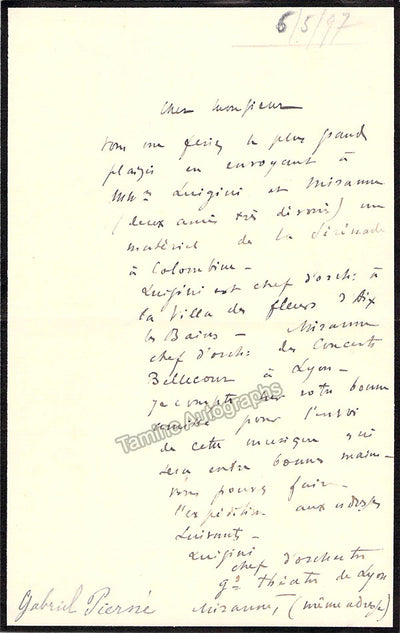 6/5/97
Cher Monsieur
Vous me feriez le plus grand
plaisir en envoyant à
MM^rs Luigini et Miranne
(deux amis très dévoués) un
matériel de la Sérénade
à Colombine –
Luigini est chef d'orch: à
la Villa des fleurs d'Aix
les Bains – Miranne
chef d'orch: des Concerts
Bellecour à Lyon –
Je compte sur votre bonne
amitié pour l'envoi
de cette musique qui
sera entre bonnes mains –
Vous pouvez faire
l'expédition aux adresses
suivantes –
Luigini
chef d'orchestre
g^d théâtre de Lyon
Miranne, (même adresse)
Gabriel Pierné
Tamino Autographs